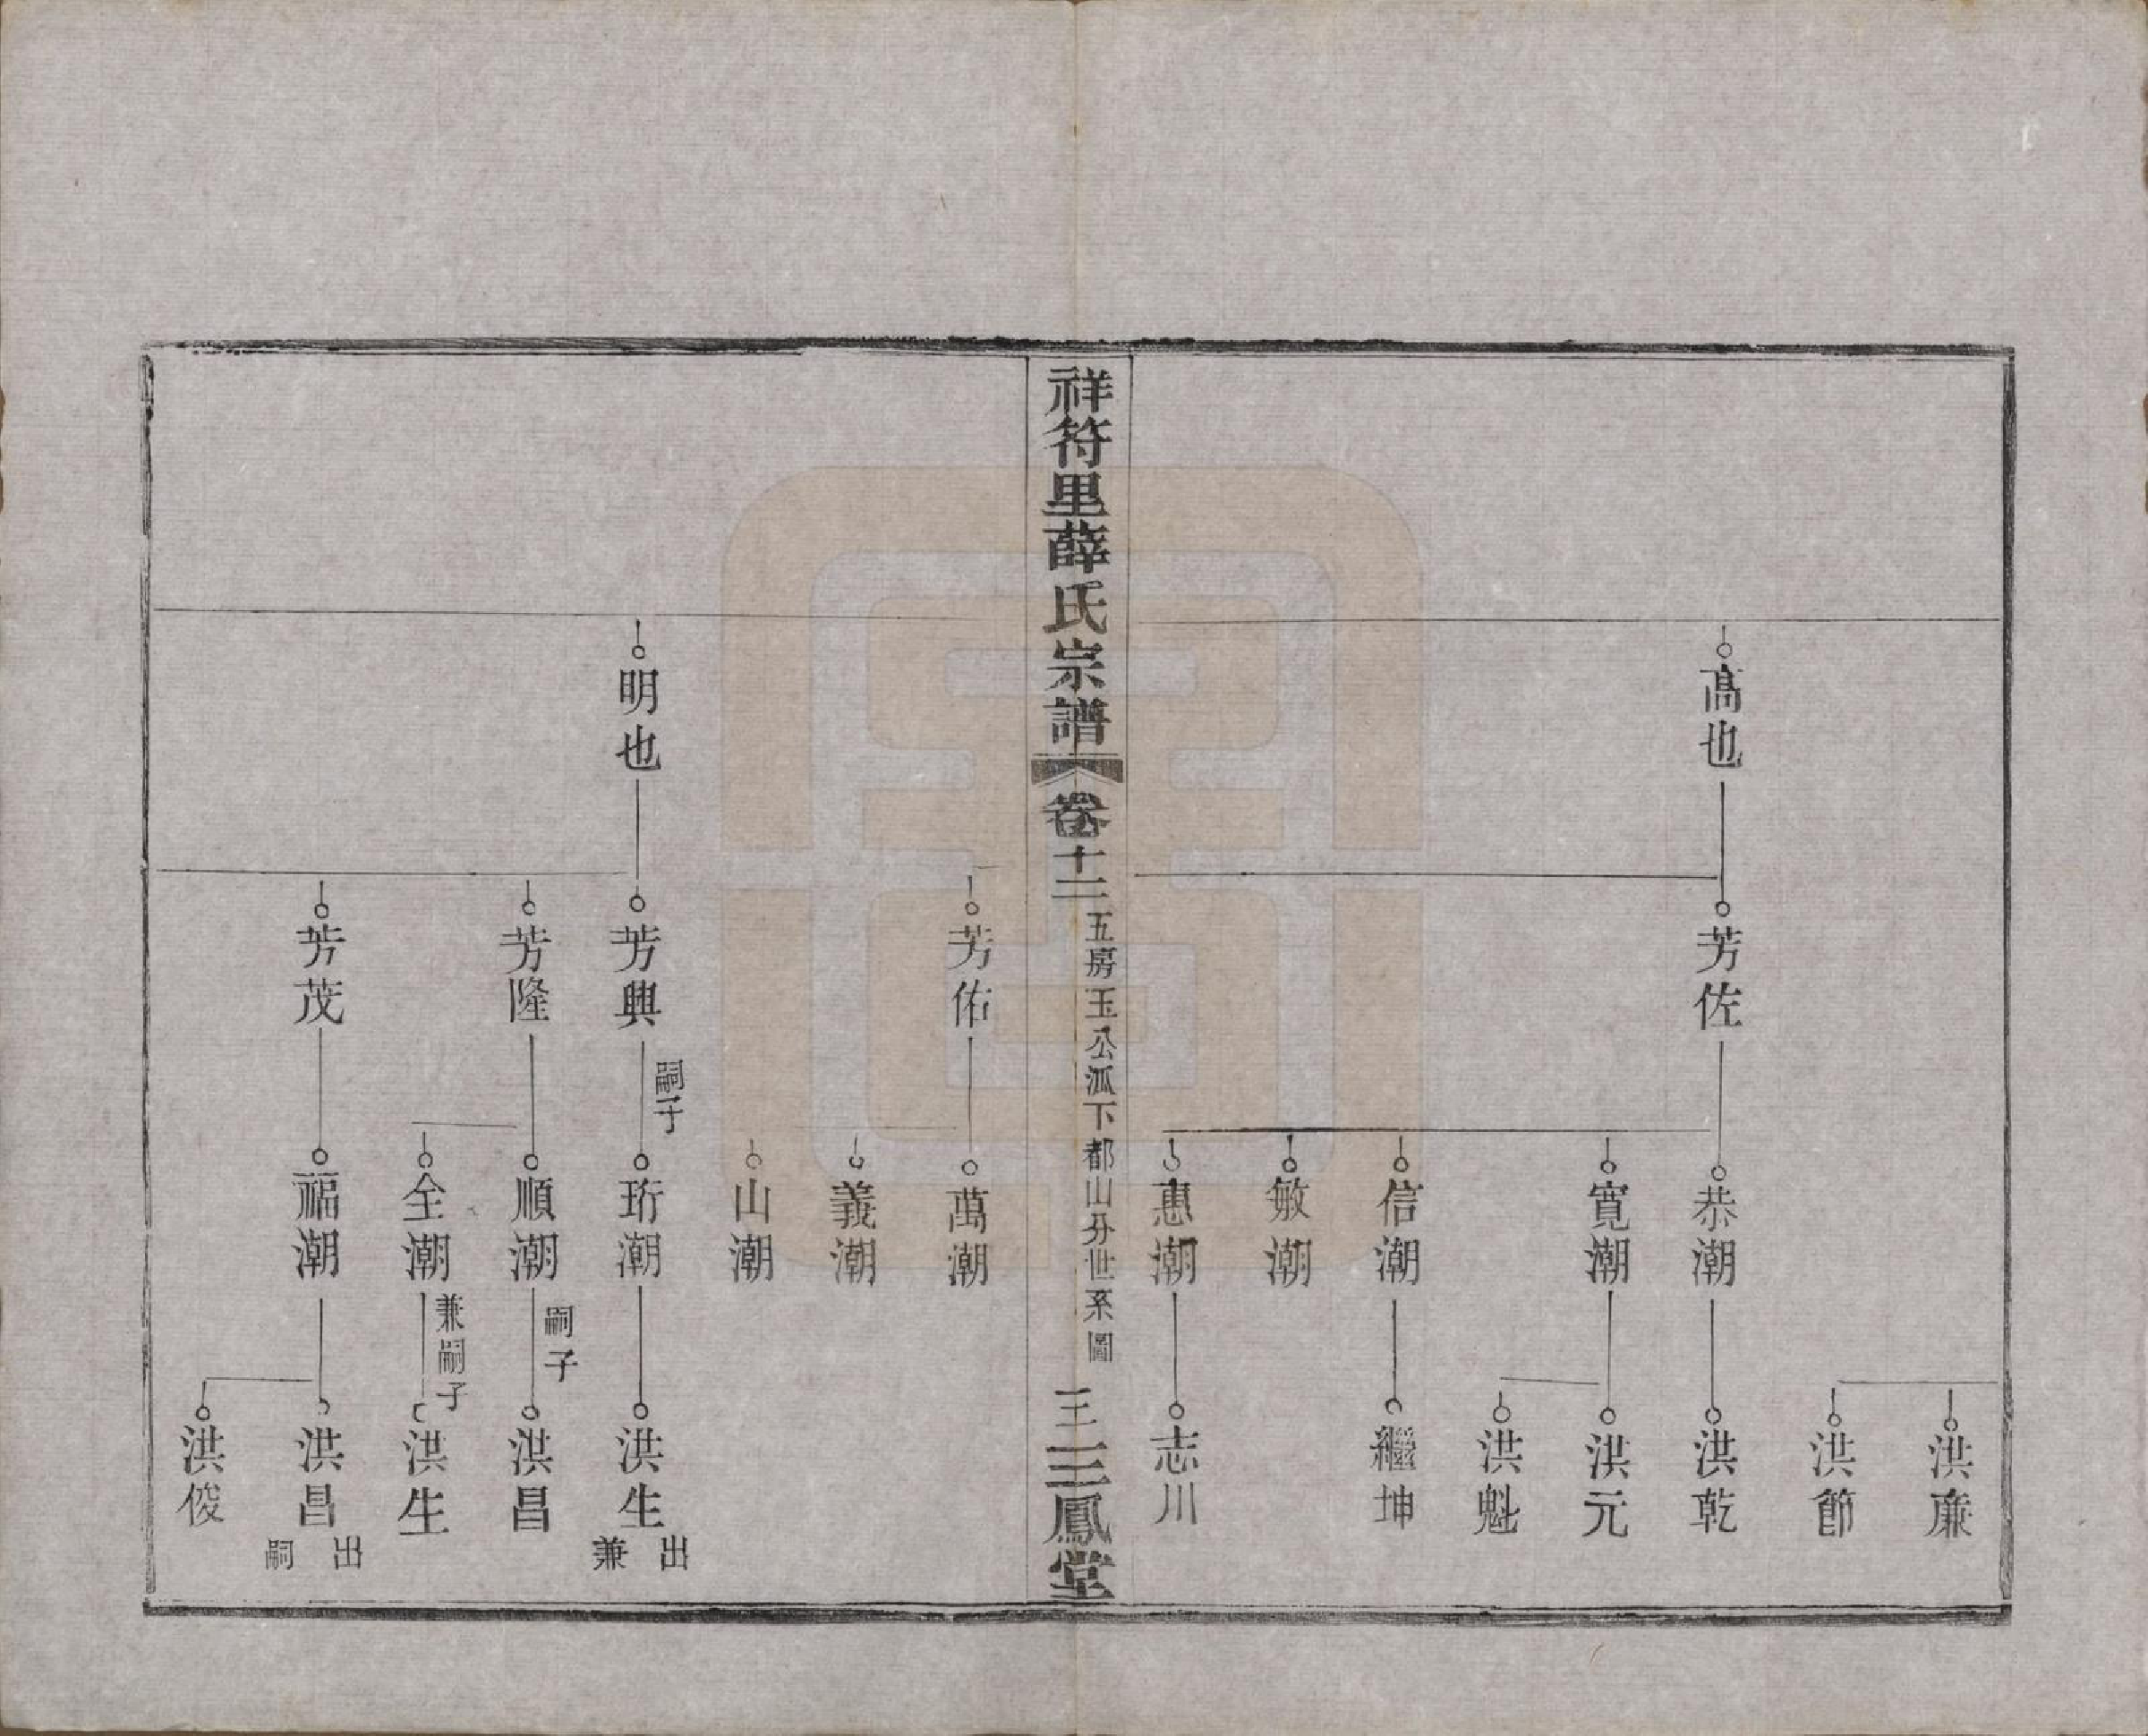 洪廉
洪節
高也
芳佐
恭潮
洪乾
寬潮
洪元
洪魁
信潮
繼坤
敏潮
惠潮
志川
祥符里薛氏宗譜
卷十二
五房玉公派下都山分世系圖
三鳳堂
芳佑
萬潮
義潮
山潮
明也
芳興
嗣子
珩潮
洪生
出兼
芳隆
順潮
嗣子
洪昌
全潮
兼嗣子
洪生
芳茂
福潮
洪昌
出嗣
洪俊